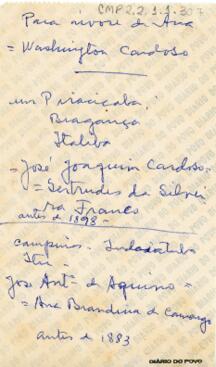 CMP 2.2.1.1-307
Para árvore de Ana
= Washington Cardoso
em Piracicaba,
Bragança
Itatiba
= José Joaquim Cardoso =
= Gertrudes da Silvei
ra Franco
antes de 1898
Campinas - Indaiatuba
Itu -
José Antº de Aquino =
= Ana Brandina de Camargo
antes de 1883
DIÁRIO DO POVO